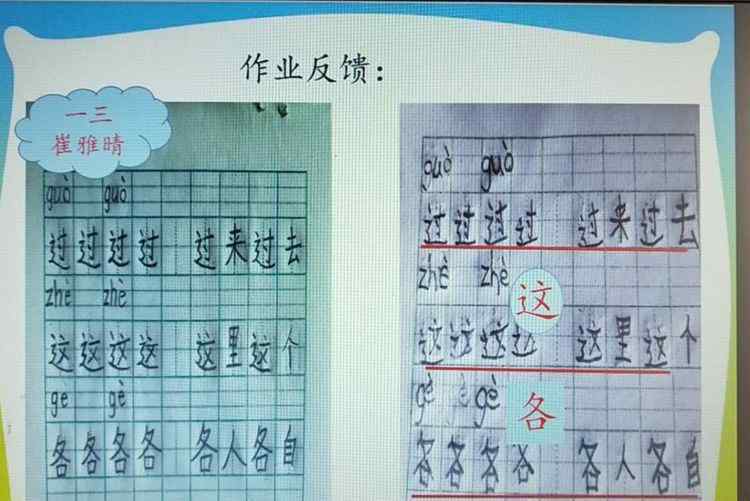 作业反馈：
一三
崔雅晴
guò guò
过过过过 过来过去
zhè zhè
这这这这 这里这个
ge gè
各各各各 各人各自
guò guò
过过过过 过来过去
zhè zhè
这
这这这这 这里这个
gè gè
各
各各各各 各人各自